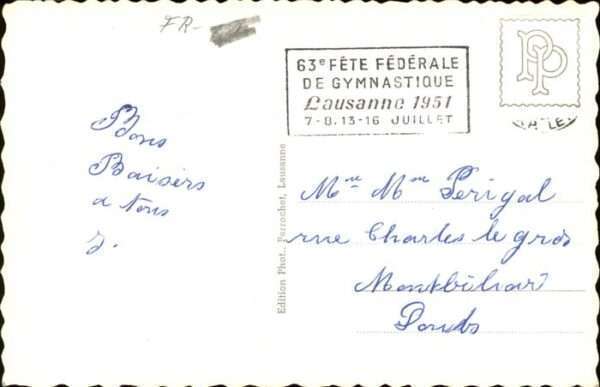 FR-
63e FÊTE FÉDÉRALE
DE GYMNASTIQUE
Lausanne 1951
7-8. 13-16 JUILLET
PP
Bons
Baisers
a tous
J.
Edition Phot. Perrochet, Lausanne
Mme Perigal
rue Charles le gros
Montbéliard
Doubs